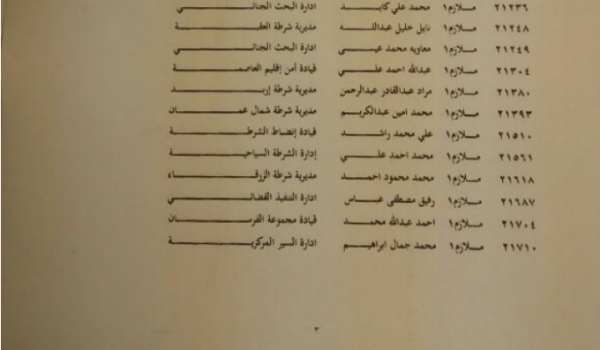 ٢١٢٣٦ ملازم١ محمد علي كايد ادارة البحث الجنائي
٢١٢٤٨ ملازم١ نايل خليل عبدالله مديرية شرطة العقبة
٢١٢٤٩ ملازم١ معاويه محمد عيسى ادارة البحث الجنائي
٢١٣٠٤ ملازم١ عبدالله احمد علي قيادة أمن إقليم العاصمة
٢١٣٨٠ ملازم١ مراد عبدالقادر عبدالرحمن مديرية شرطة إربد
٢١٣٩٣ ملازم١ محمد امين عبدالكريم مديرية شرطة شمال عمان
٢١٥١٠ ملازم١ علي محمد راشد قيادة إنضباط الشرطة
٢١٥٦١ ملازم١ محمد احمد علي إدارة الشرطة السياحية
٢١٦١٨ ملازم١ محمد محمود احمد مديرية شرطة الزرقاء
٢١٦٨٧ ملازم١ رفيق مصطفى عباس ادارة التنفيذ القضائي
٢١٧٠٤ ملازم١ احمد عبدالله محمد قيادة مجموعة الفرسان
٢١٧١٠ ملازم١ محمد جمال ابراهيم ادارة السير المركزية
٣